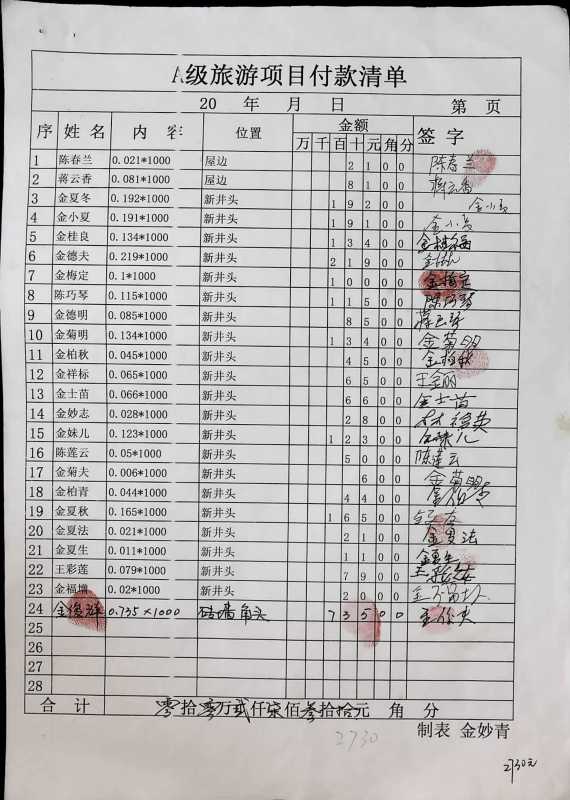 A级旅游项目付款清单
20 年 月 日 第 页
序 姓名 内容 位置 金额 签字
万 千 百 十 元 角 分
1 陈春兰 0.021*1000 屋边 2 1 0 0 陈春兰
2 蒋云香 0.081*1000 屋边 8 1 0 0 蒋云香
3 金夏冬 0.192*1000 新井头 1 9 2 0 0
4 金小夏 0.191*1000 新井头 1 9 1 0 0 金小夏
5 金桂良 0.134*1000 新井头 1 3 4 0 0
6 金德夫 0.219*1000 新井头 2 1 9 0 0
7 金梅定 0.1*1000 新井头 1 0 0 0 0 金梅定
8 陈巧琴 0.115*1000 新井头 1 1 5 0 0 陈巧琴
9 金德明 0.085*1000 新井头 8 5 0 0
10 金菊明 0.134*1000 新井头 1 3 4 0 0 金菊明
11 金柏秋 0.045*1000 新井头 4 5 0 0 金柏秋
12 金祥标 0.065*1000 新井头 6 5 0 0
13 金士苗 0.066*1000 新井头 6 6 0 0 金士苗
14 金妙志 0.028*1000 新井头 2 8 0 0
15 金妹儿 0.123*1000 新井头 1 2 3 0 0 金妹儿
16 陈莲云 0.05*1000 新井头 5 0 0 0 陈莲云
17 金菊夫 0.006*1000 新井头 6 0 0 金菊明
18 金柏青 0.044*1000 新井头 4 4 0 0
19 金夏秋 0.165*1000 新井头 1 6 5 0 0
20 金夏法 0.021*1000 新井头 2 1 0 0 金夏法
21 金夏生 0.011*1000 新井头 1 1 0 0 金夏生
22 王彩莲 0.079*1000 新井头 7 9 0 0
23 金福增 0.02*1000 新井头 2 0 0 0
24 金俊祥 0.735×1000 砖墙角头 7 3 5 0 0
25
26
27
28
合计 零拾零万贰仟柒佰叁拾拾元 角 分
2730
制表 金妙青
2730元